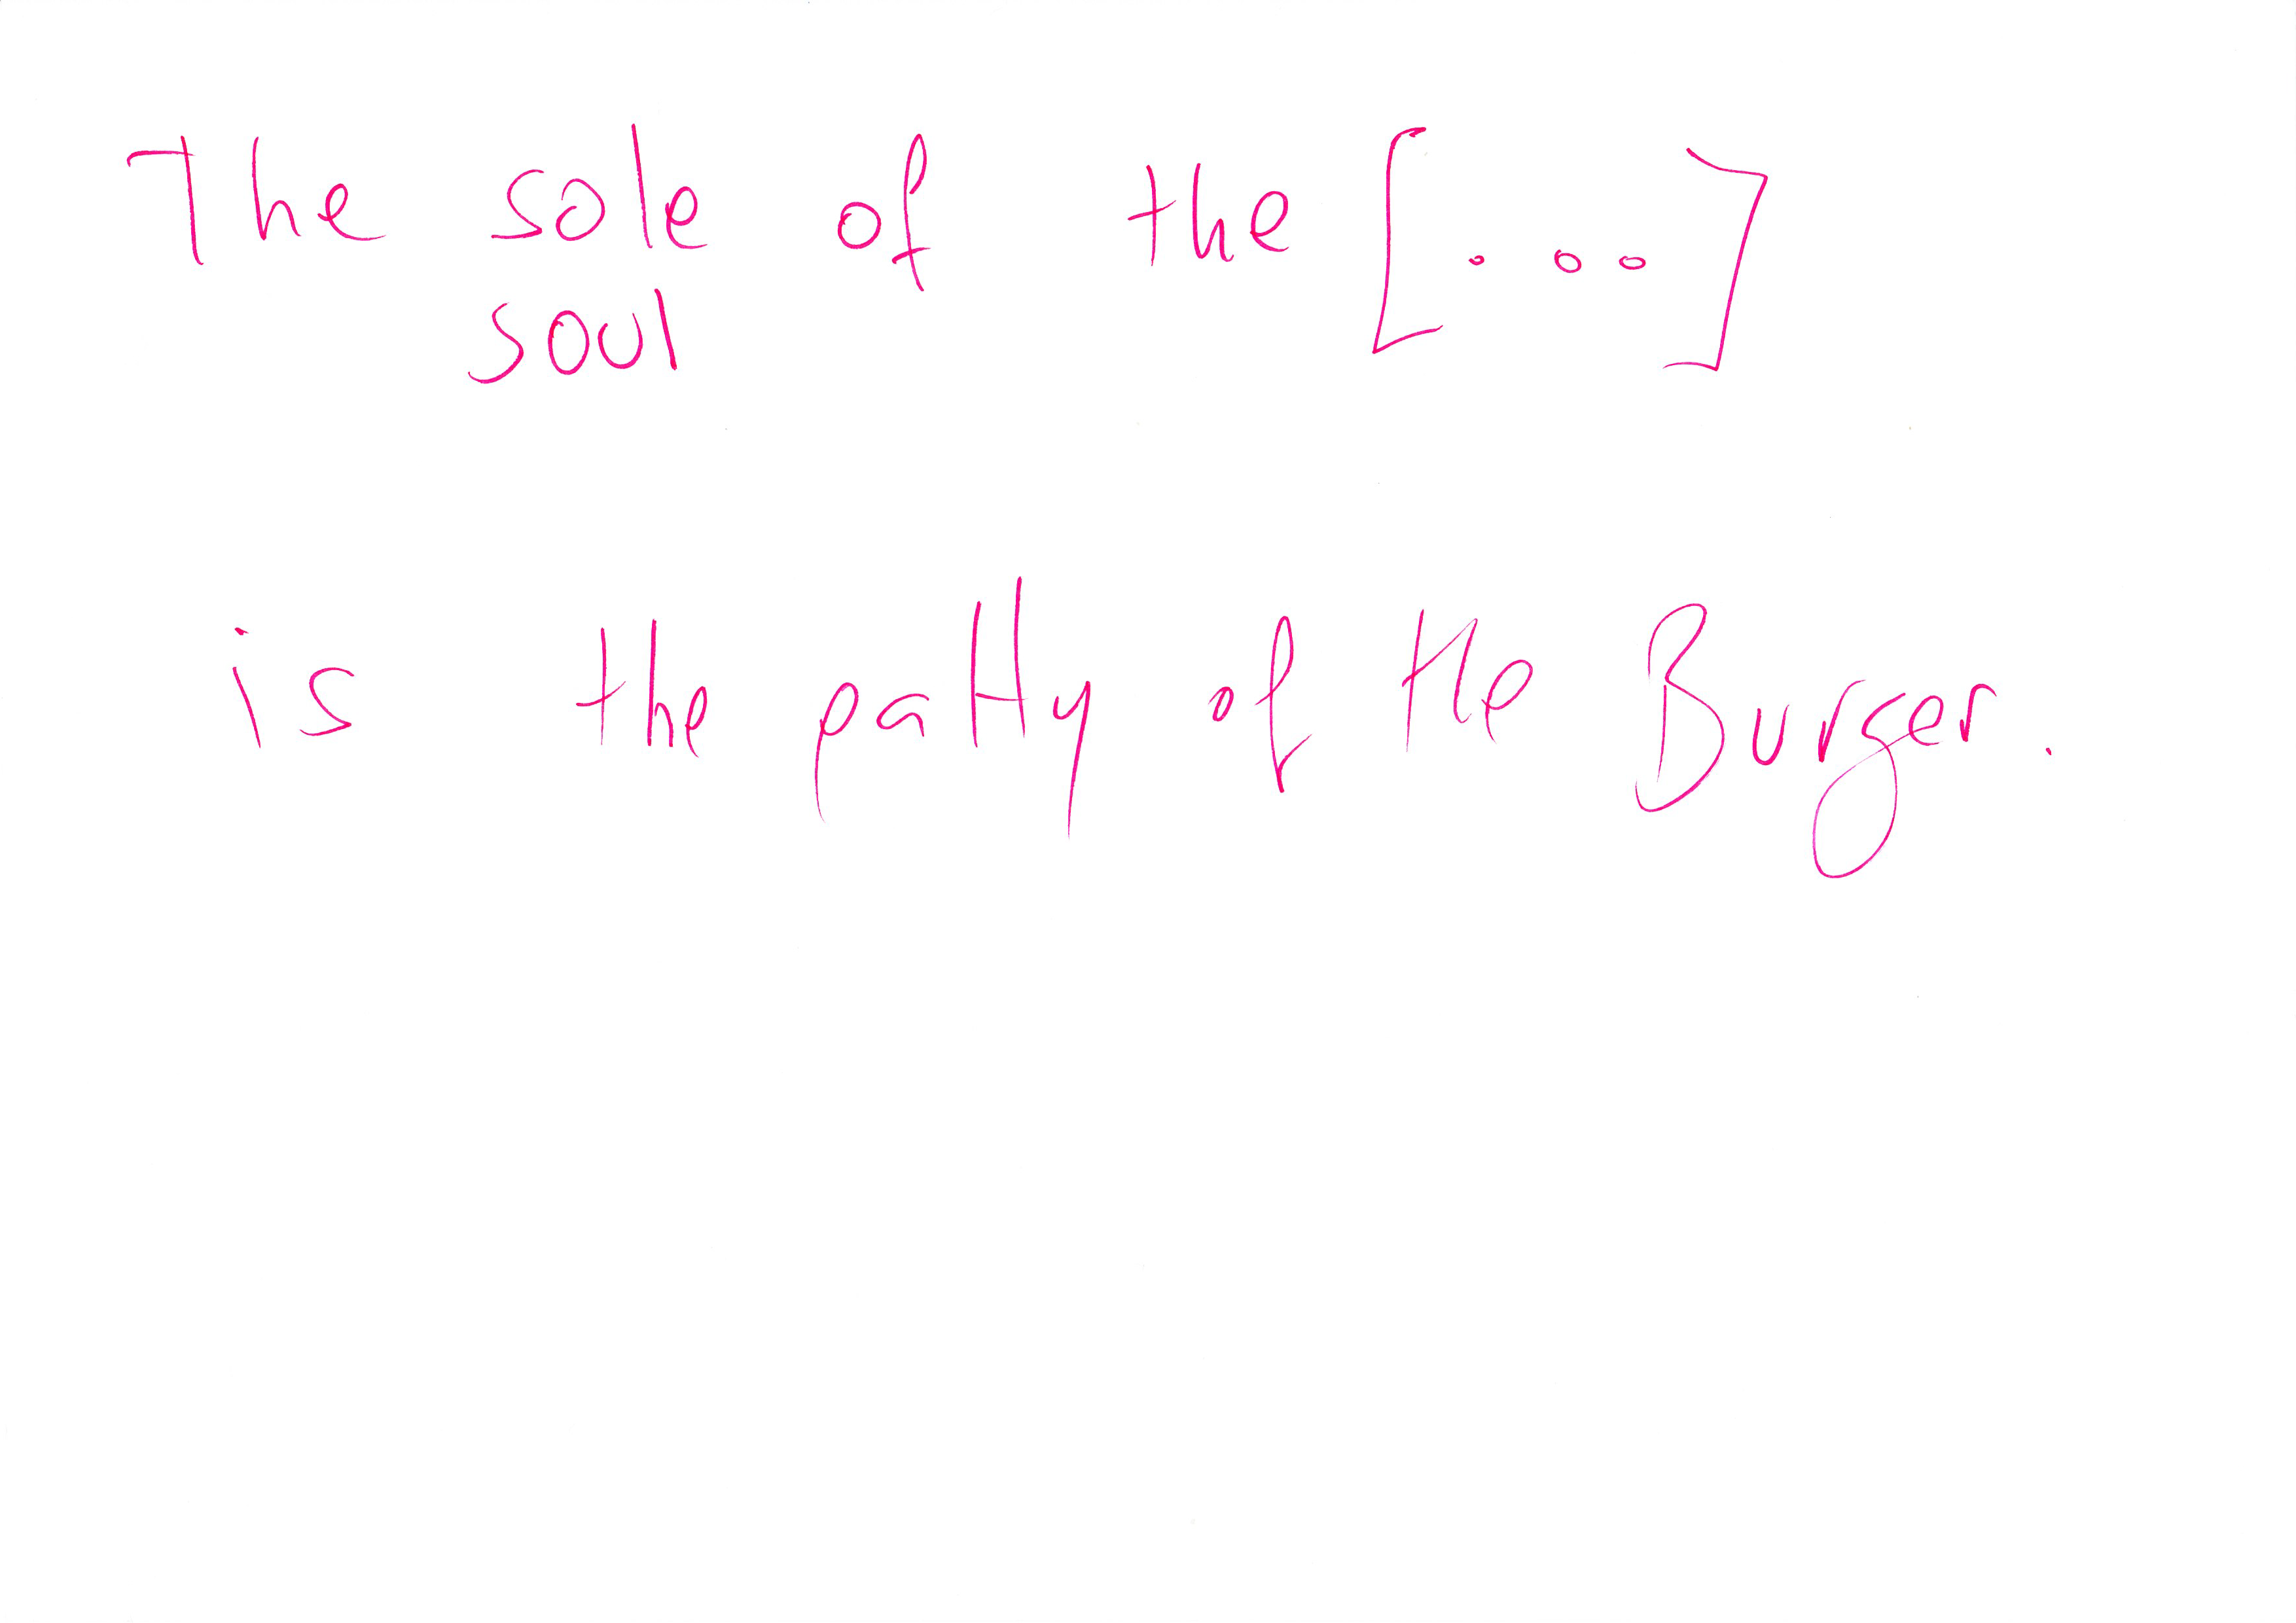 The sole of the [...]
soul
is the patty of the Burger.